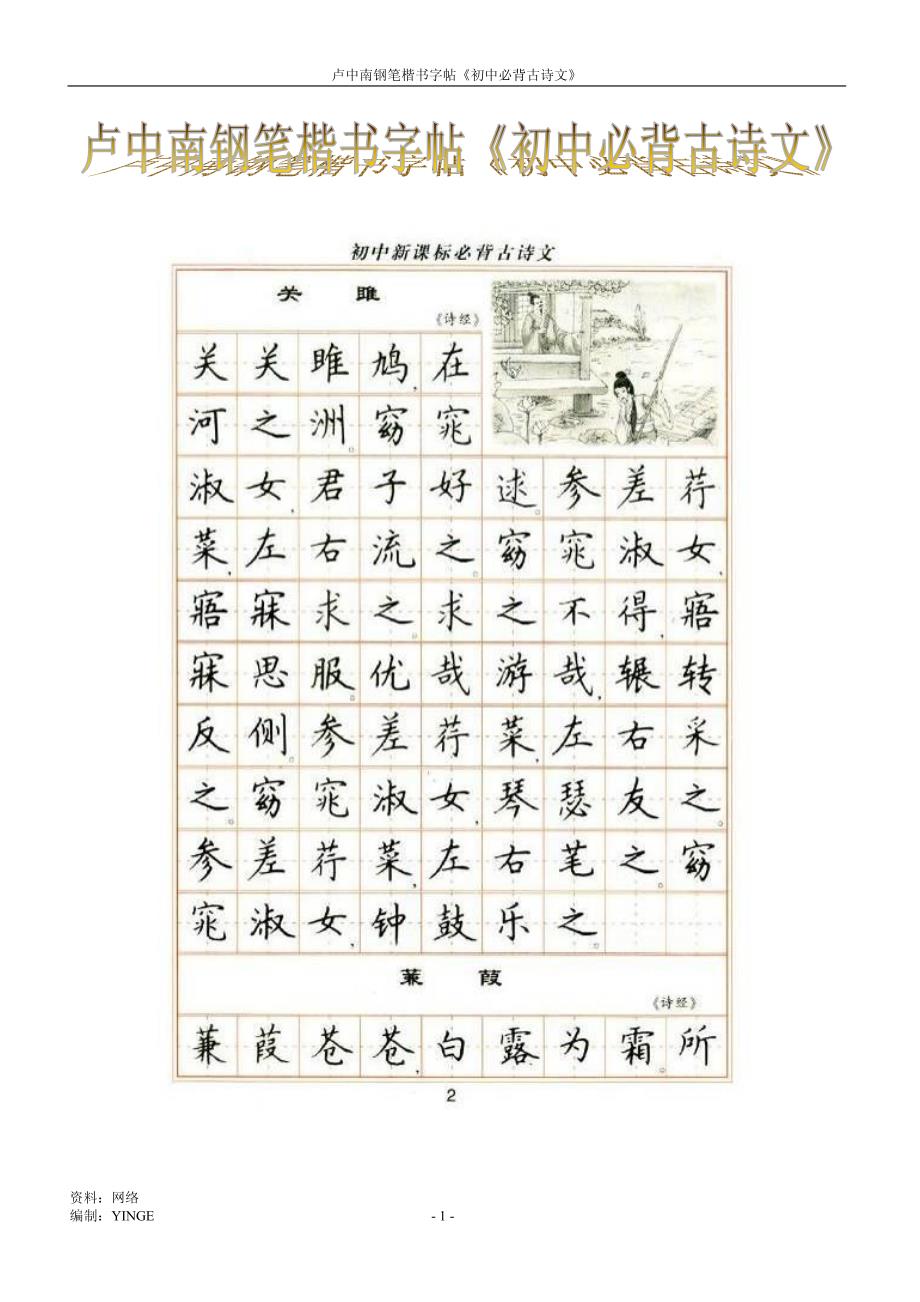 卢中南钢笔楷书字帖《初中必背古诗文》
卢中南钢笔楷书字帖《初中必背古诗文》
初中新课标必背古诗文
关 雎
《诗经》
关关雎鸠,在
河之洲。窈窕
淑女,君子好逑。参差荇
菜,左右流之。窈窕淑女,
寤寐求之。求之不得,寤
寐思服。优哉游哉,辗转
反侧。参差荇菜,左右采
之。窈窕淑女,琴瑟友之。
参差荇菜,左右芼之。窈
窕淑女,钟鼓乐之。
蒹 葭
《诗经》
蒹葭苍苍,白露为霜。所
2
资料：网络
编制：YINGE
- 1 -